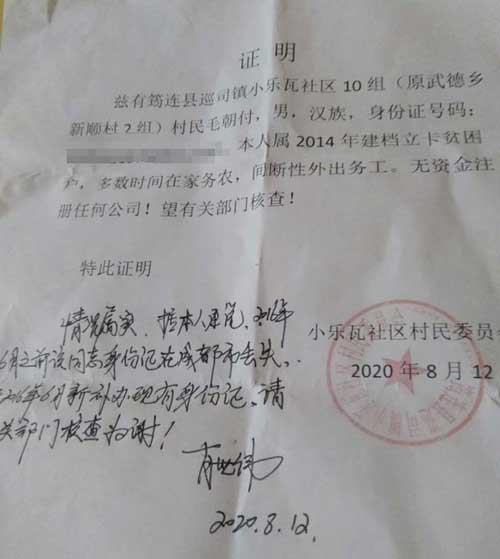 证明
兹有筠连县巡司镇小乐瓦社区 10 组（原武德乡
新顺村 2 组）村民毛朝付，男，汉族，身份证号码：
本人属 2014 年建档立卡贫困
户，多数时间在家务农，间断性外出务工。无资金注
册任何公司！望有关部门核查！
特此证明
情况属实、据本人原说，2016年
6月之前该同志身份证在成都市丢失、
2016年6月新补办现有身份证、请
关部门核查为谢！
小乐瓦社区村民委员
2020 年 8 月 12
2020.8.12.